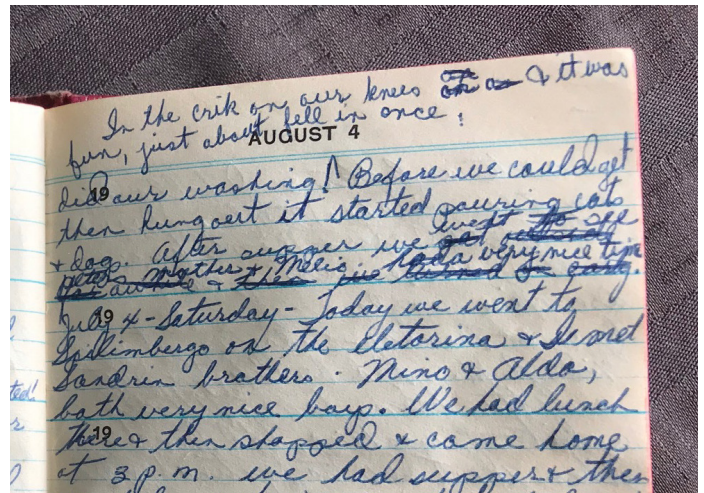 In the crik on our knees & it was
fun, just about fell in once.
AUGUST 4
19
did our washing! Before we could get
them hung out it started pouring cats
& dog. After supper we went to see
mother & Melio. had a very nice time
& then
19
July 4 - Saturday - Today we went to
Spilimbergo on the Eletorina & I met
Sandrin brothers. Mino & Aldo,
both very nice boys. We had lunch
19
there & then shopped & came home
at 3 p.m. we had supper & then
ted!